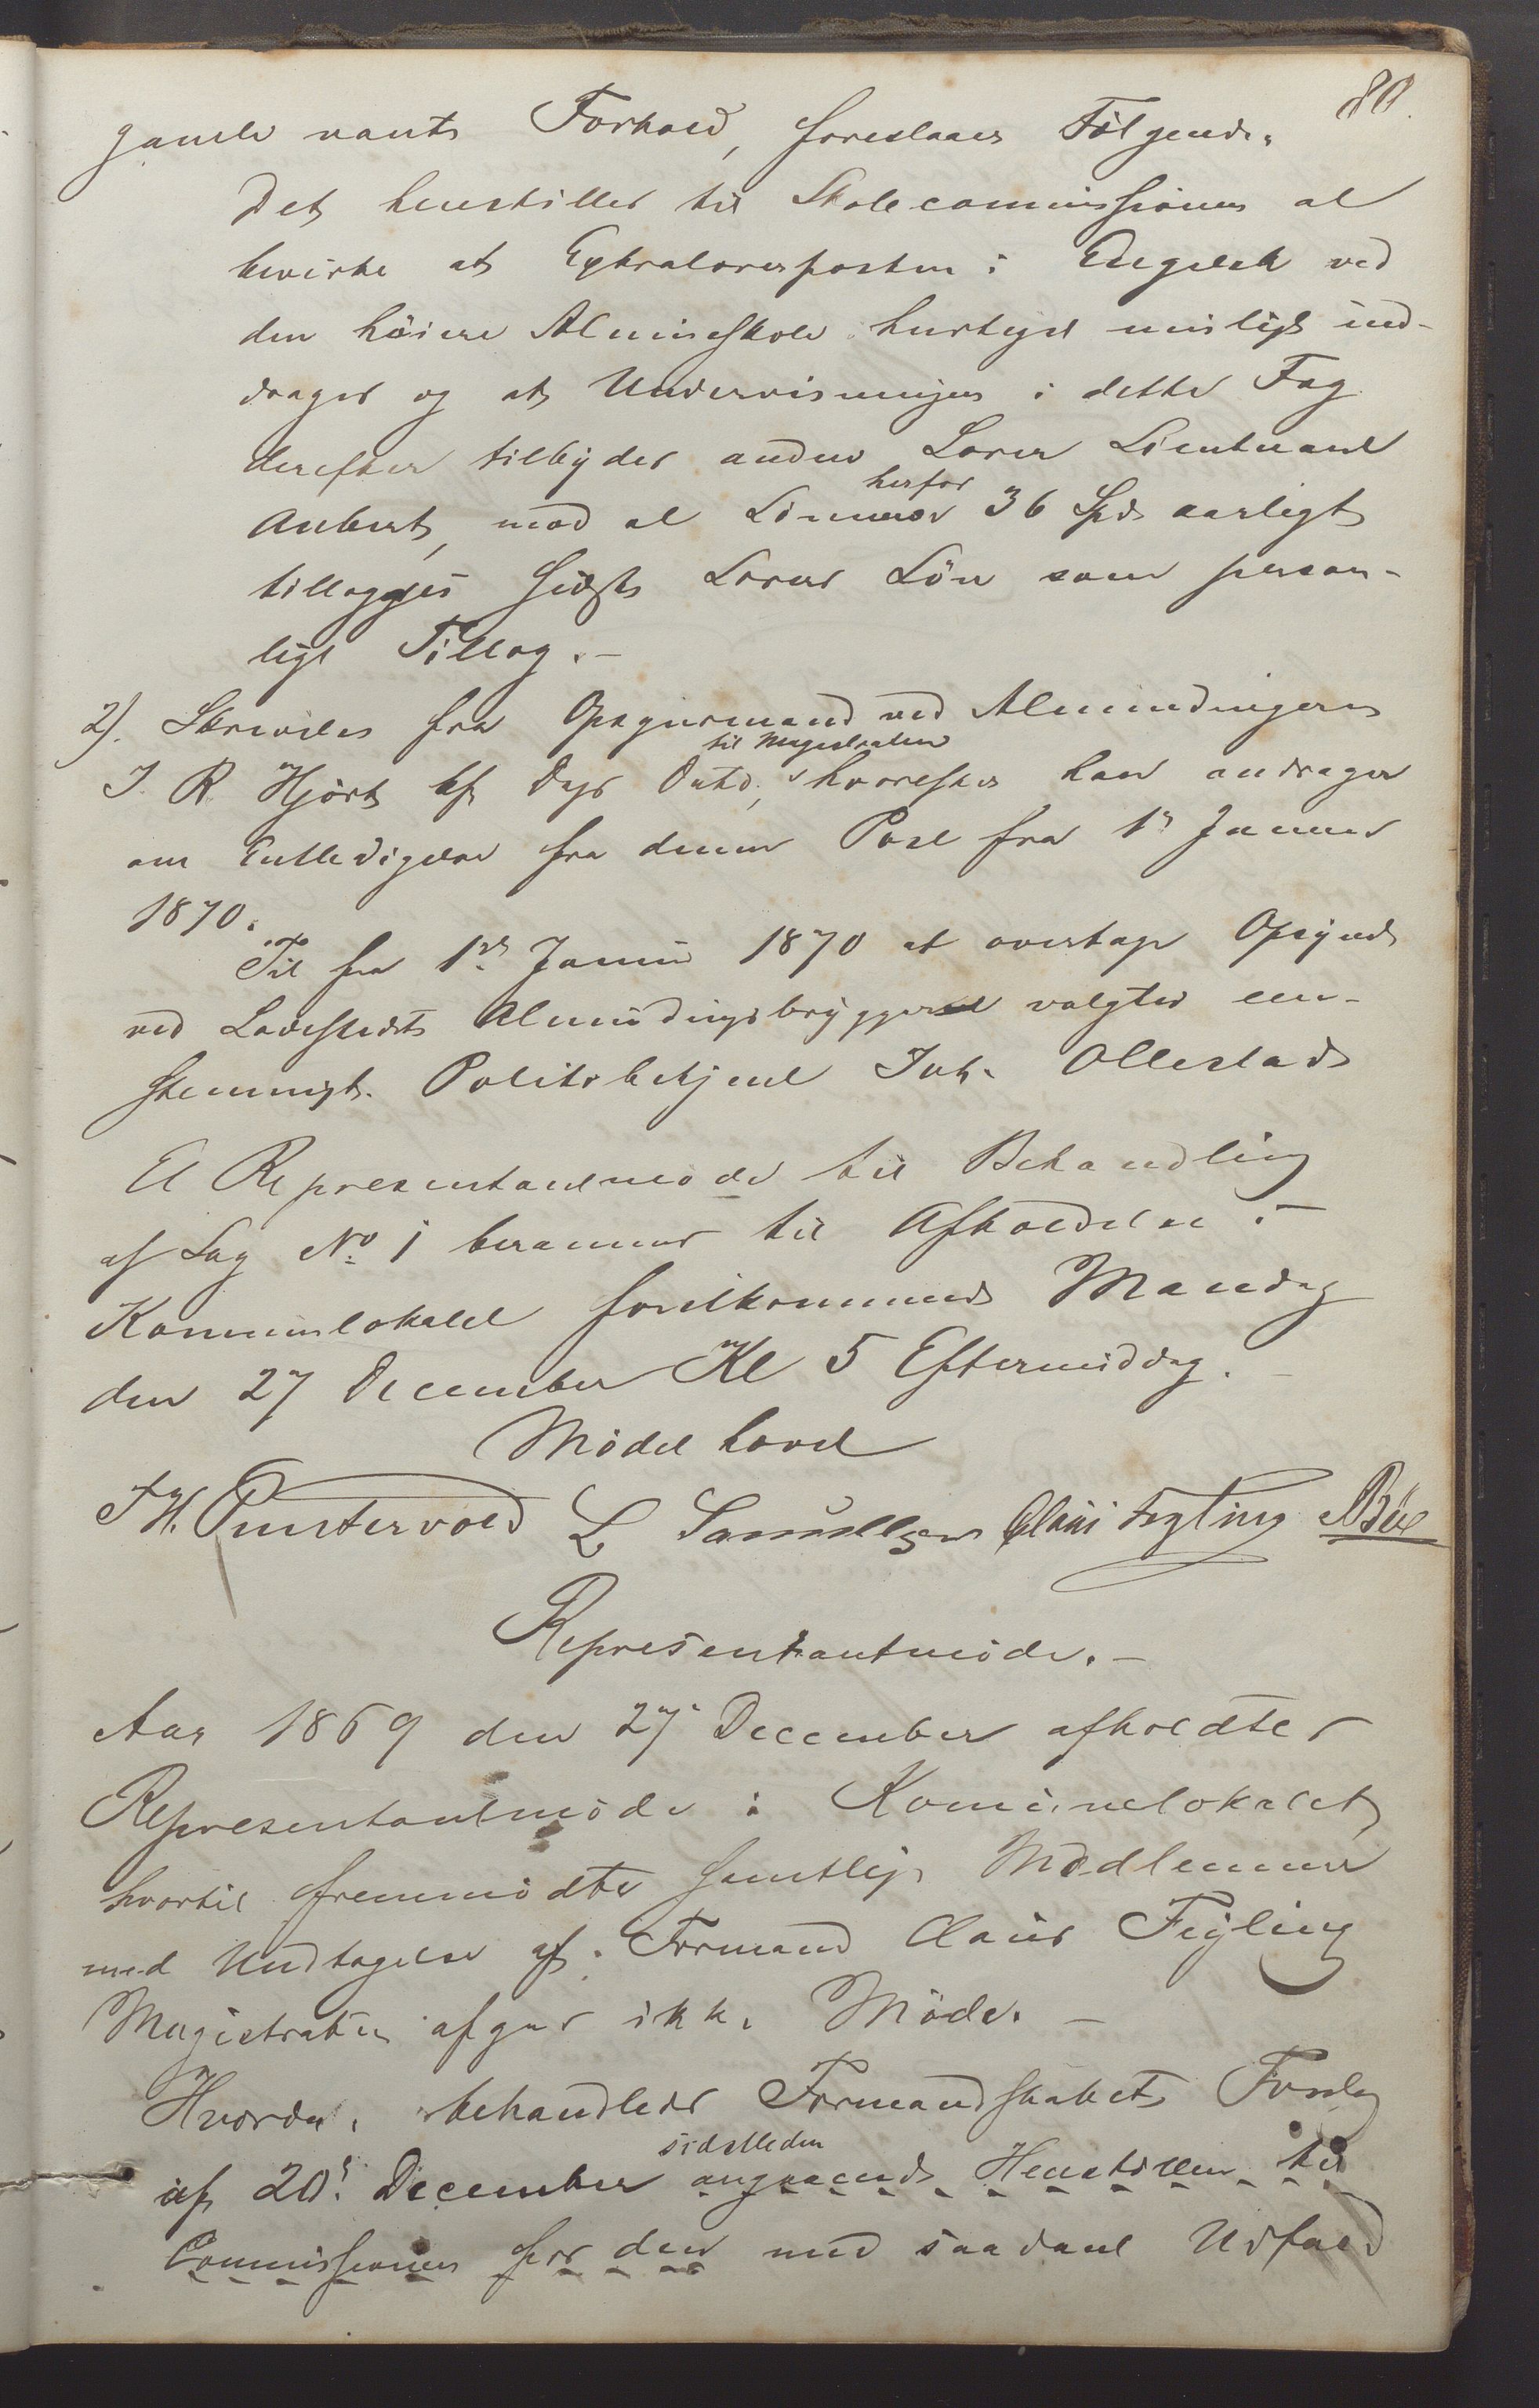 80.
gamle vante Forhold, foreslaaes Følgende.
Det henstilles til Skolecommissionen at
bevirke at Extralærerposten i Engelsk ved
den høiere Almueskole hurtigst muligt ind-
drages og at Undervisningen i dette Fag
derefter tilbydes anden Lærer Lieutnant
herfor
Aubert, mod at Lønnen 36 Spd. aarligt
tillægges sidste Lærers Løn som person-
ligt Tillæg.-
2). Skrivelse fra Opsynsmand ved Almindingerne
til Magistraten
J. R Hjørt af Dags Dato, hvorefter han andrager
om Entledigelse fra denne Post fra 1ste Januar
1870.
Til fra 1ste Januar 1870 at overtage Opsynet
ved Ladestedets Almindingsbryggerne valgtes een-
stemmigt. Politibetjent Joh. Ollestad
Et Representantmøde til Behandling
af Sag No 1 berammes til Afholdelse i
Komunelokalet førstkommende Mandag
den 27 December Kl 5 Eftermiddag.
Mødet hævet
T H. Puntervold L Samuelsen Claus Feyling
Representantmøde.-
Aar 1869 den 27 December afholdtes
Representantmøde i Komunelokalet
hvortil fremmødte samtlige Medlemmer
med Undtagelse af Formand Claus Feyling
Magistraten afgav ikke Møde. -
Hvorda. behandledes Formandskabets Forslag
sidstleden
af 20de December angaaende Henstillen til
Commissionen for den med saadant Udfald